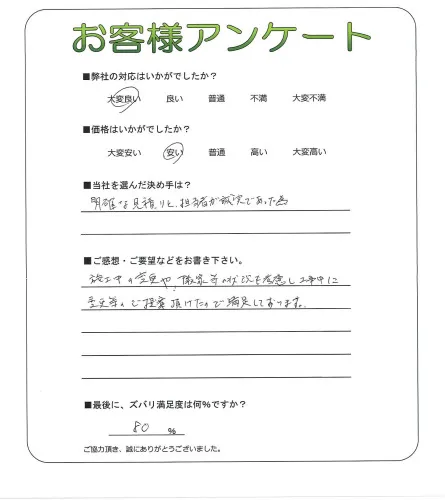 お客様アンケート
■弊社の対応はいかがでしたか？
大変良い 良い 普通 不満 大変不満
■価格はいかがでしたか？
大変安い 安い 普通 高い 大変高い
■当社を選んだ決め手は？
明確な見積りと、担当者が誠実であった為
■ご感想・ご要望などをお書き下さい。
施工中の変更や、 等の状況を考慮し工事中に
変更等のご提案頂けたので満足しております。
■最後に、ズバリ満足度は何%ですか？
80 %
ご協力頂き、誠にありがとうございました。